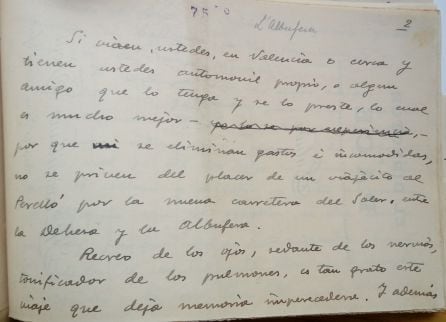 75
L'Albufera
2
Si viven, ustedes, en Valencia o cerca y
tienen ustedes automovil propio, o algun
amigo que lo tenga y se lo preste, lo cual
es mucho mejor – yo lo se por experiencia, –
por que se eliminan gastos é incomodidas,
no se priven del placer de un viajecito al
Perelló por la nueva carretera del Saler, entre
la Dehesa y la Albufera.
Recreo de los ojos, sedante de los nervios,
tonificador de los pulmones, es tan grato este
viaje que deja memoria imperecedera. Y además